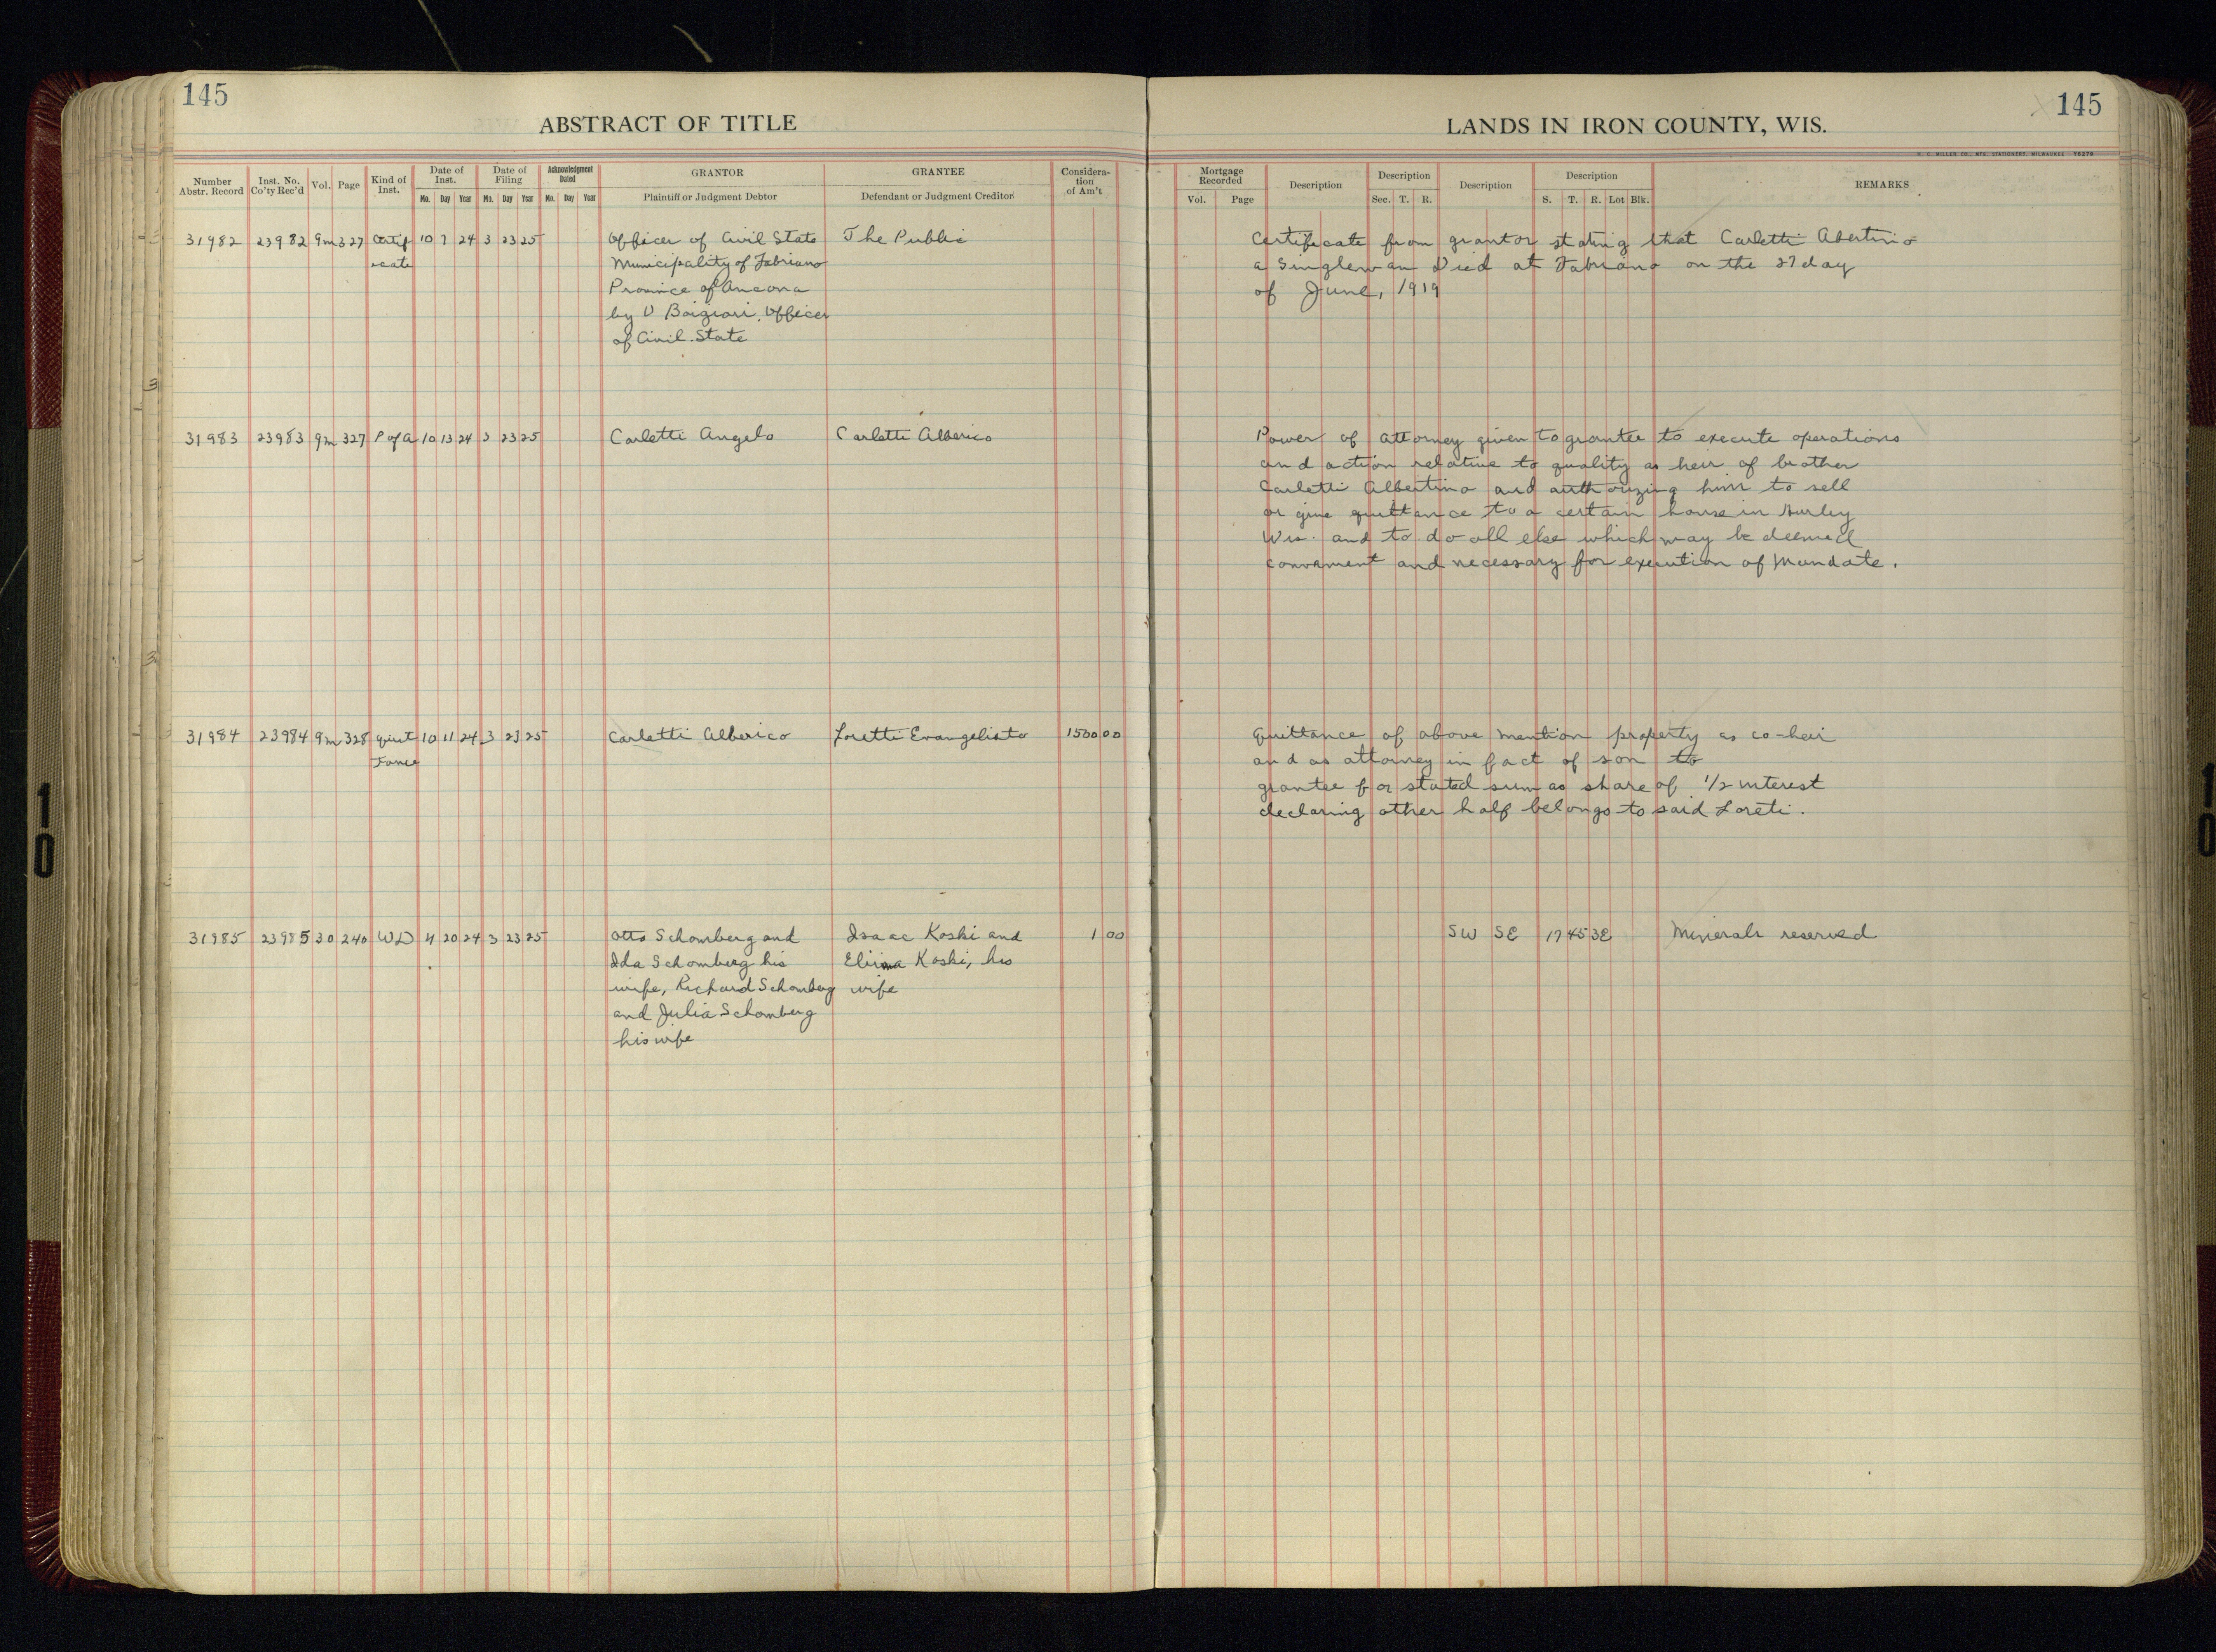 145
ABSTRACT OF TITLE
LANDS IN IRON COUNTY, WIS.
145
H. C. MILLER CO., MFG. STATIONERS, MILWAUKEE
Number Abstr. Record
Inst. No. Co'ty Rec'd
Vol.
Page
Kind of Inst.
Date of Inst.
Mo. Day Year
Date of Filing
Mo. Day Year
Acknowledgment Dated
Mo. Day Year
GRANTOR
Plaintiff or Judgment Debtor
GRANTEE
Defendant or Judgment Creditor
Considera-tion of Am't
Mortgage Recorded
Vol. Page
Description
Description
Sec. T. R.
Description
Description
S. T. R. Lot Blk.
REMARKS
31982 23982 9m 327 Certif 10 7 24 3 23 25 Officer of Civil State The Public Certificate from grantor stating that Carletti Abertino
icate Municipality of Fabriano a Singleman Died at Fabriano on the 27 day
Province of Ancona of June, 1919
by Officer
of Civil State
31983 23983 9m 327 P of A 10 13 24 3 23 25 Carletti Angelo Carletti Alberico Power of attorney given to grantee to execute operations
and action relative to quality as heir of brother
Carletti Albertino and authorizing him to sell
or give quittance to a certain house in Hurley
Wis. and to do all else which may be deemed
convament and necessary for execution of Mandate.
31984 23984 9m 328 quit 10 11 24 3 23 25 Carletti Alberico Loretti Evangelisto 1500 00 Quittance of above mention property as co-heir
tance and as attorney in fact of son to
grantee for stated sum as share of 1/2 interest
declaring other half belongs to said Loreti.
31985 23985 30 240 WD 4 20 24 3 23 25 Otto Schomberg and Isaac Koski and 1 00 SW SE 17 45 3E Minerals reserved
Ida Schomberg his Koski, his
wife, Richard Schomberg wife
and Julia Schomberg
his wife
10
10